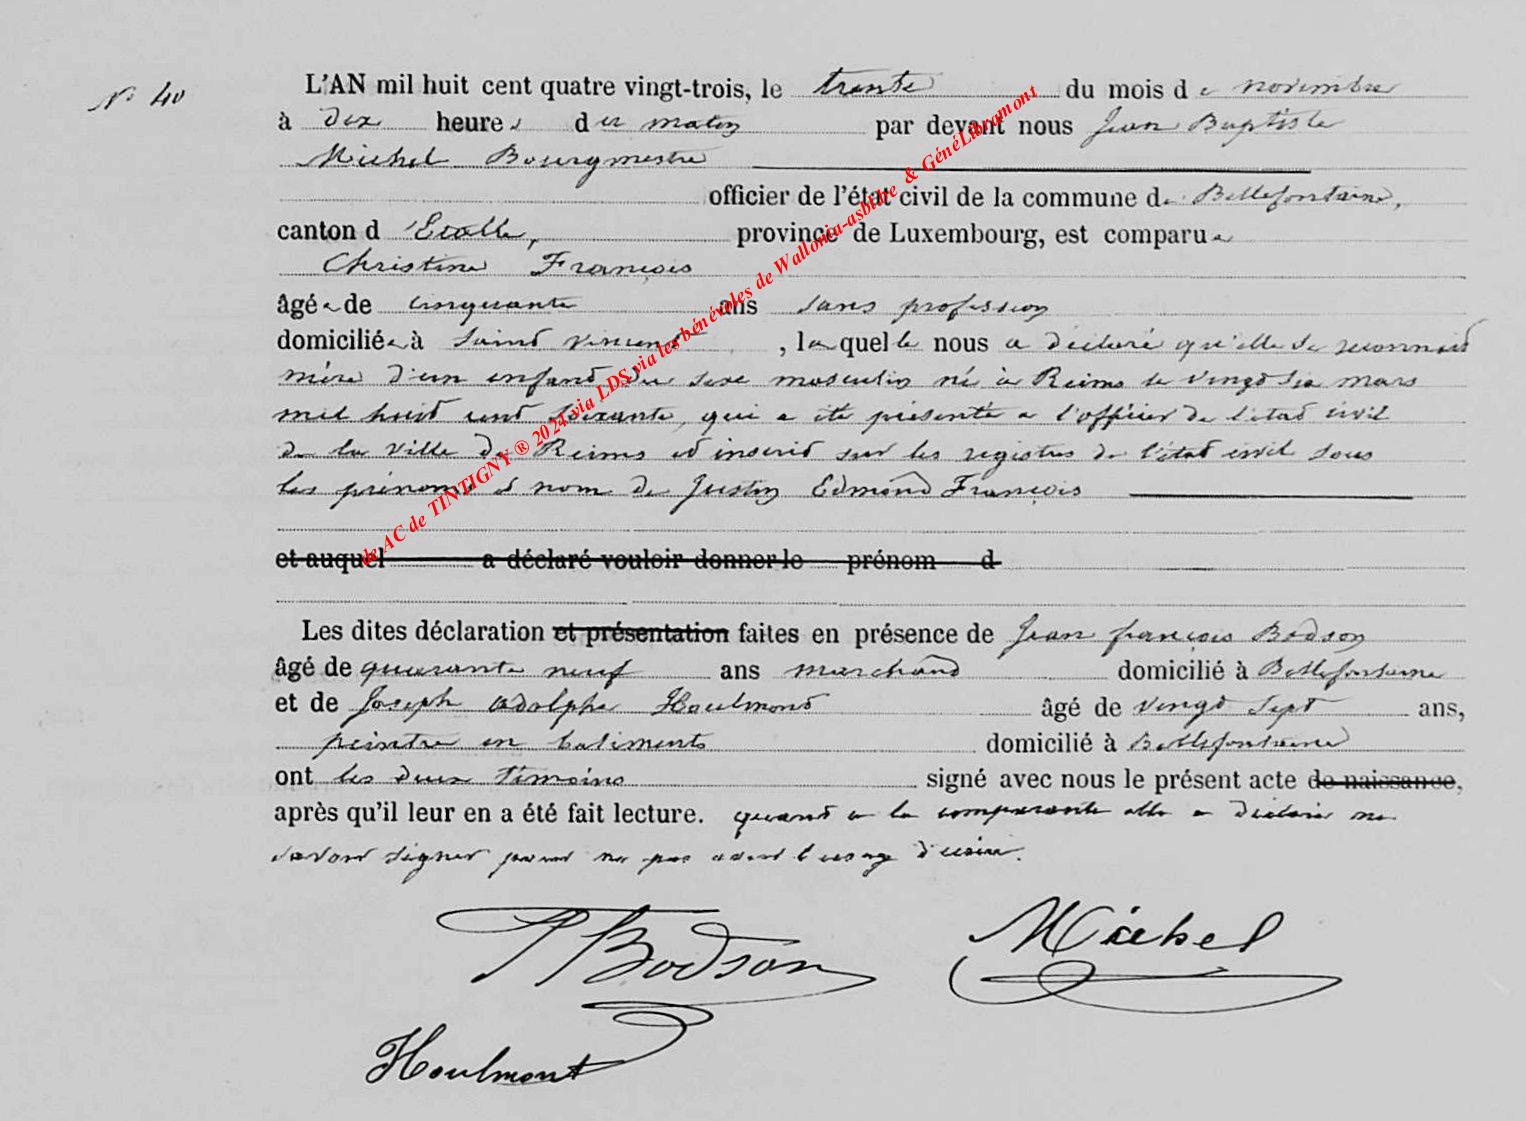 N° 40
L'AN mil huit cent quatre vingt-trois, le trente du mois de novembre
à dix heures du matin par devant nous Jean Baptiste
Michel Bourgmestre
officier de l'état civil de la commune de Bellefontaine,
canton d'Etalle, province de Luxembourg, est comparue
Christine François
âgée de cinquante ans sans profession
domiciliée à Saint Vincent, laquelle nous a déclaré qu'elle se reconnait
mère d'un enfant du sexe masculin né à Reims le vingt six mars
mil huit cent soixante, qui a été présenté a l'officier de l'état civil
de la ville de Reims et inscrit sur les registres de l'état civil sous
les prénoms et nom de Justin Edmond François
et auquel a déclaré vouloir donner le prénom d
Les dites déclaration et présentation faites en présence de Jean françois Bodson
âgé de quarante neuf ans marchand domicilié à Bellefontaine
et de Joseph Adolphe Houlmont âgé de vingt sept ans,
peintre en batiments domicilié à Bellefontaine
ont les deux témoins signé avec nous le présent acte de naissance,
après qu'il leur en a été fait lecture. quant a la comparante elle a déclaré ne
savoir signer pour ne pas avoir l'usage d'ecrire.
JBodson Michel
Houlmont
de AC de TINTIGNY ® 2024 via LDS via les bénévoles de Wallonia-asbl.be & GénéLibramont